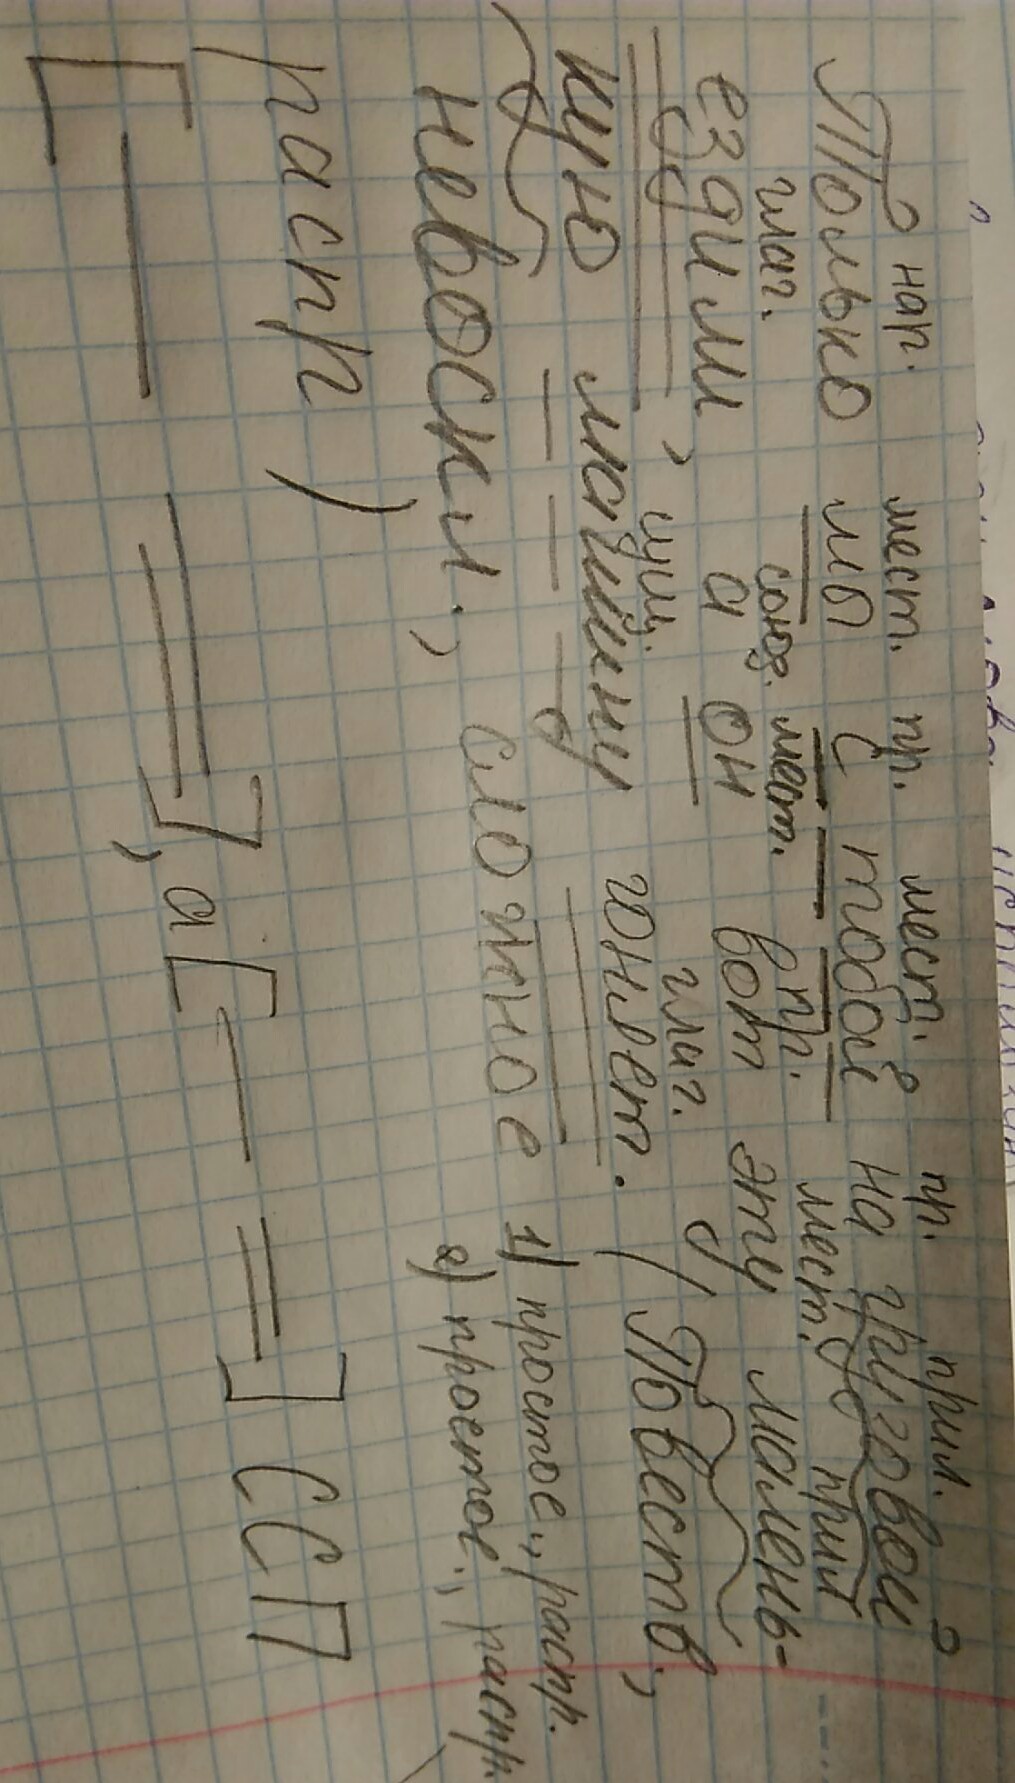 нар. мест. пр. мест. пр. прил.
Только мы с тобой на грузовой
глаг. союз. мест. пр. мест. прил
ездим, а он вот эту малень-
сущ. глаг.
кую машину гоняет. (Повеств.,
невоскл., сложное 1) простое, расп.
распр) 2) простое, распр.
[— =], а [— =] СП